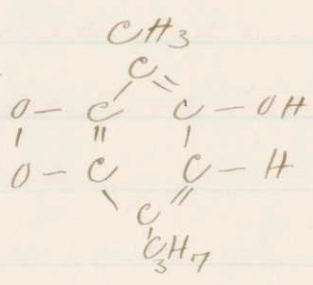 CH3
C
O — C C — OH
O — C C — H
C
C3H7